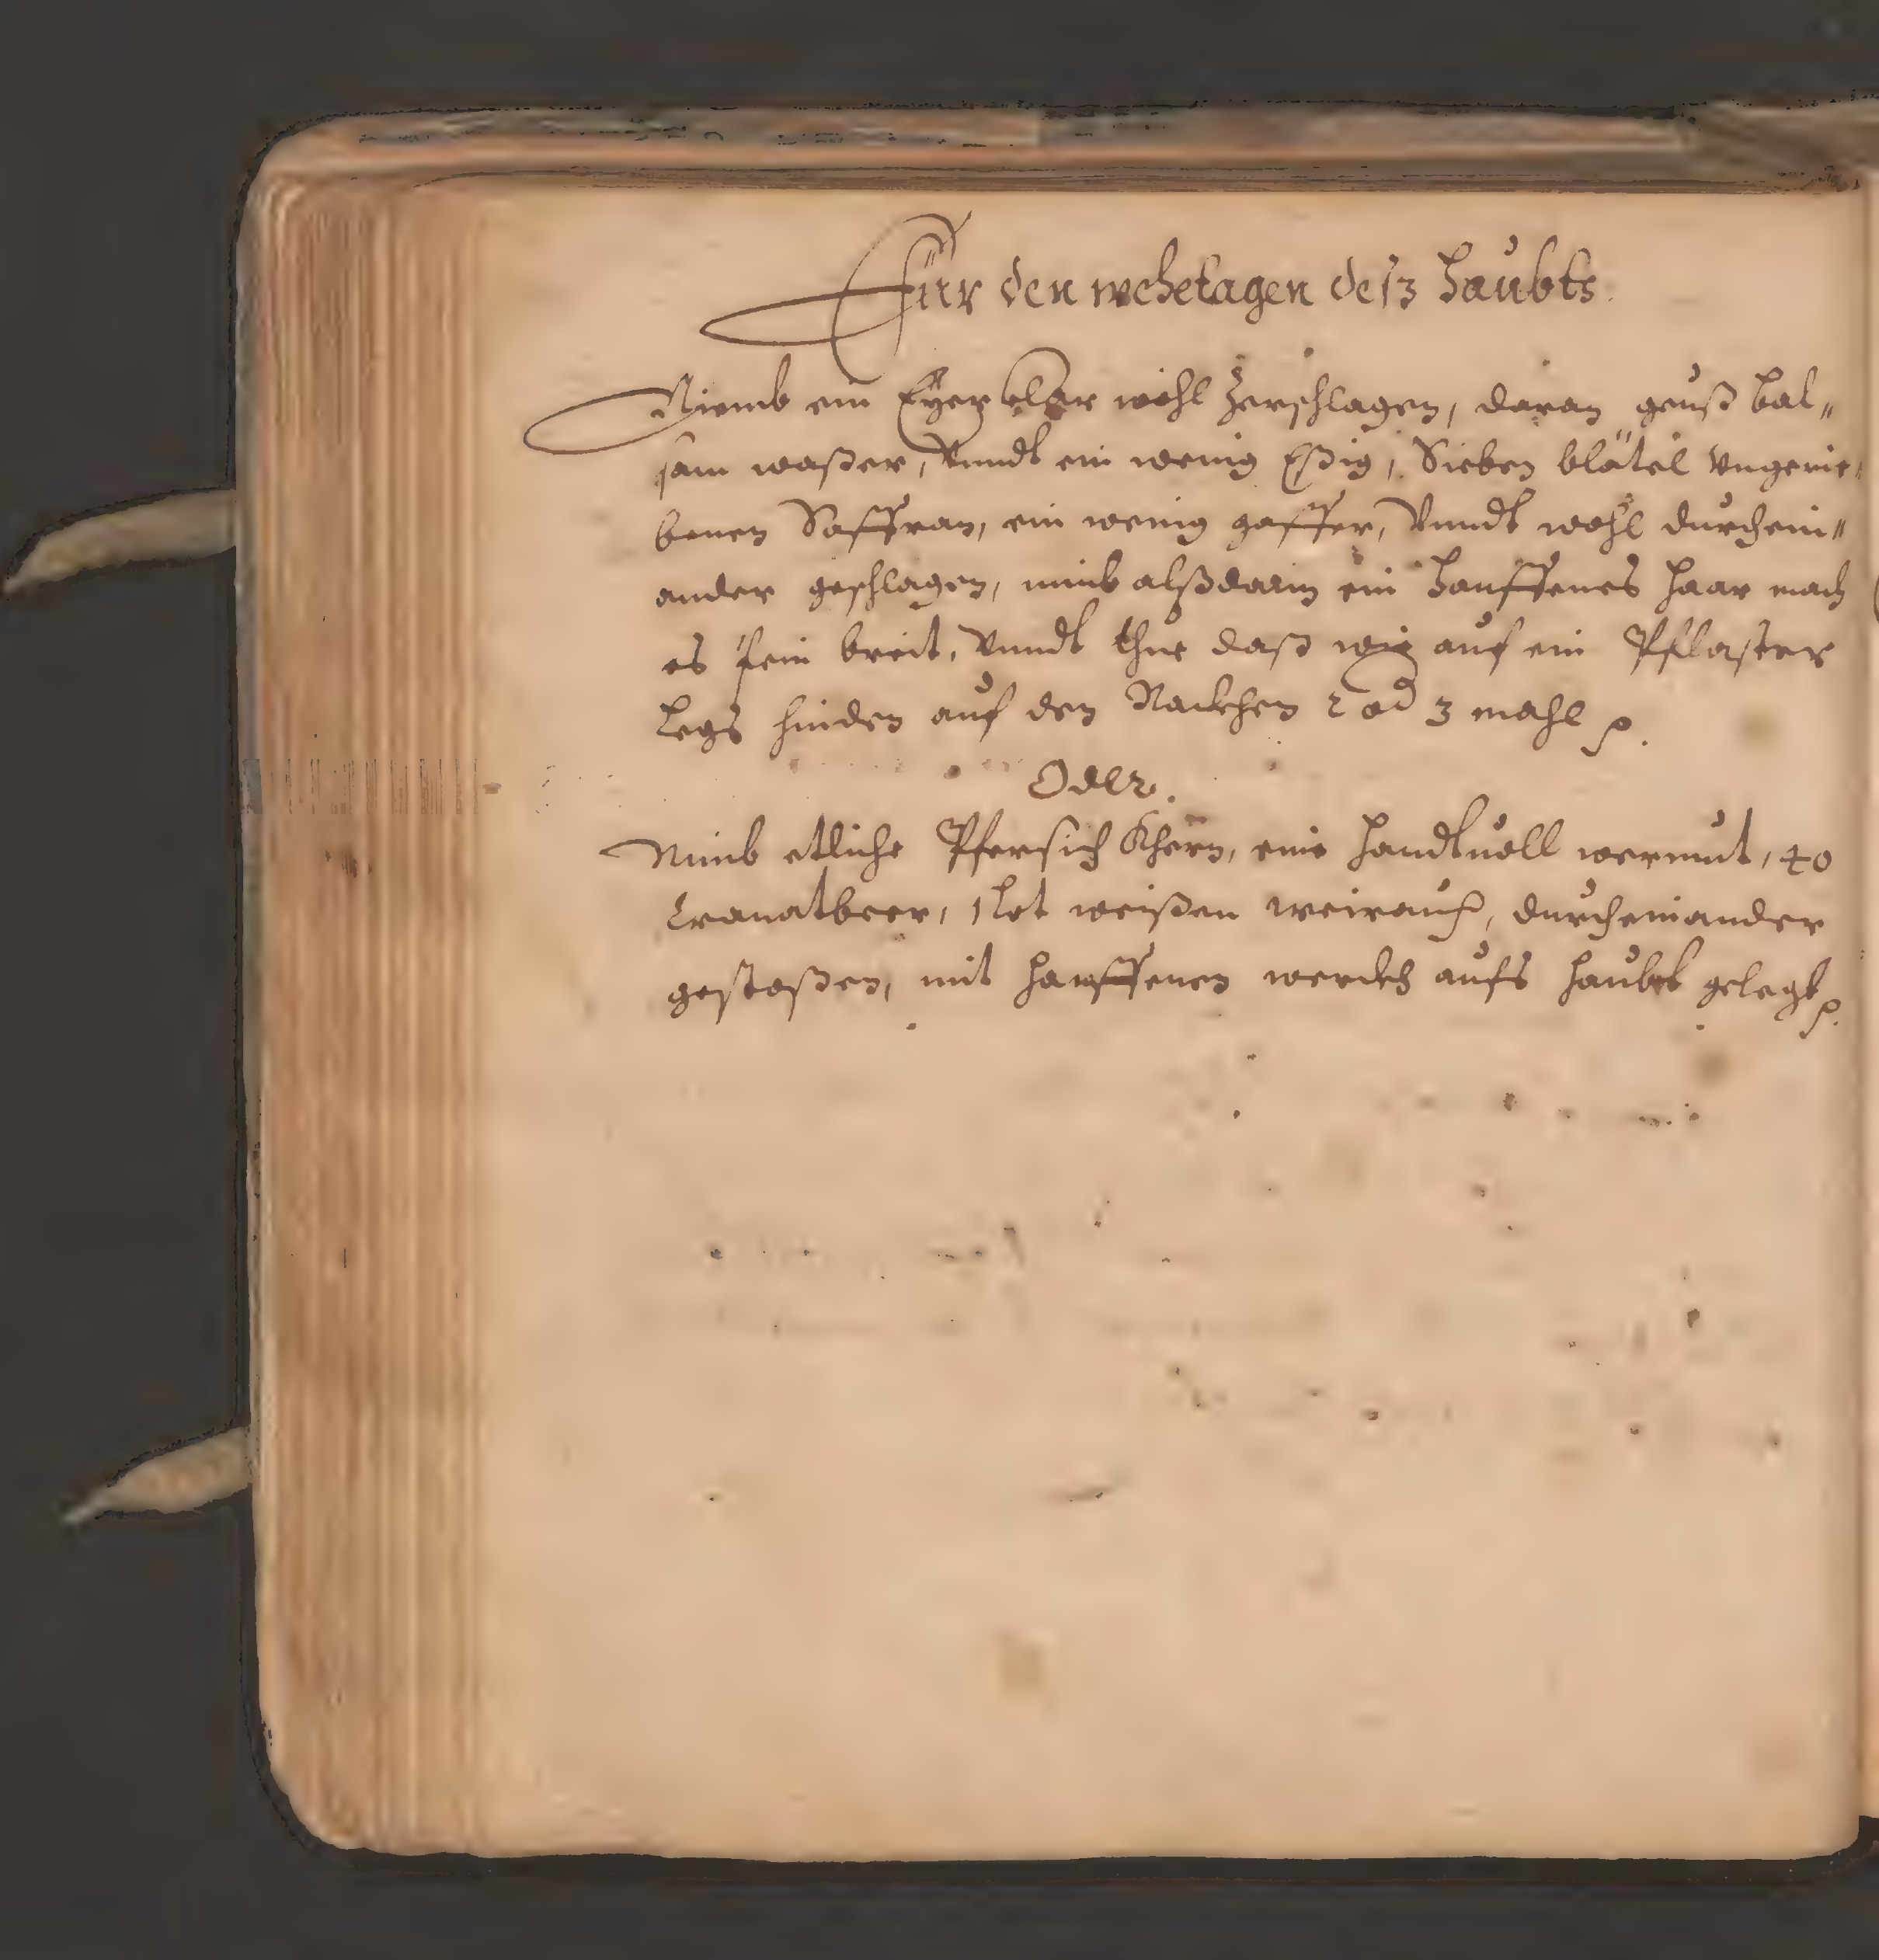 Für den wehetagen desz Haubts
Niemb ein Eyer klar wohl Zerschlagen, daran geuß bal„
sam waßer, Vnndt ein wenig Eßig, Sieben blätel Vngerie„
benen Saffran, ein wenig gaffer, Vnndt wohl durchein„
ander geschlagen, nimb alßdann ein Hanffenes Haar mach
es fein breit, Vnndt thue daß wie auf ein Pflaster
Legs hinden auf den Nackhen 2 od 3 mahl
Oder.
Nimb etliche Pfersich Khern, eine Handtuoll wermut, 40
Cranatbeer, 1 Lot weißen weirauch, durcheinander
gestoßen, mit Hanffenen werckh aufs Haubt gelegt